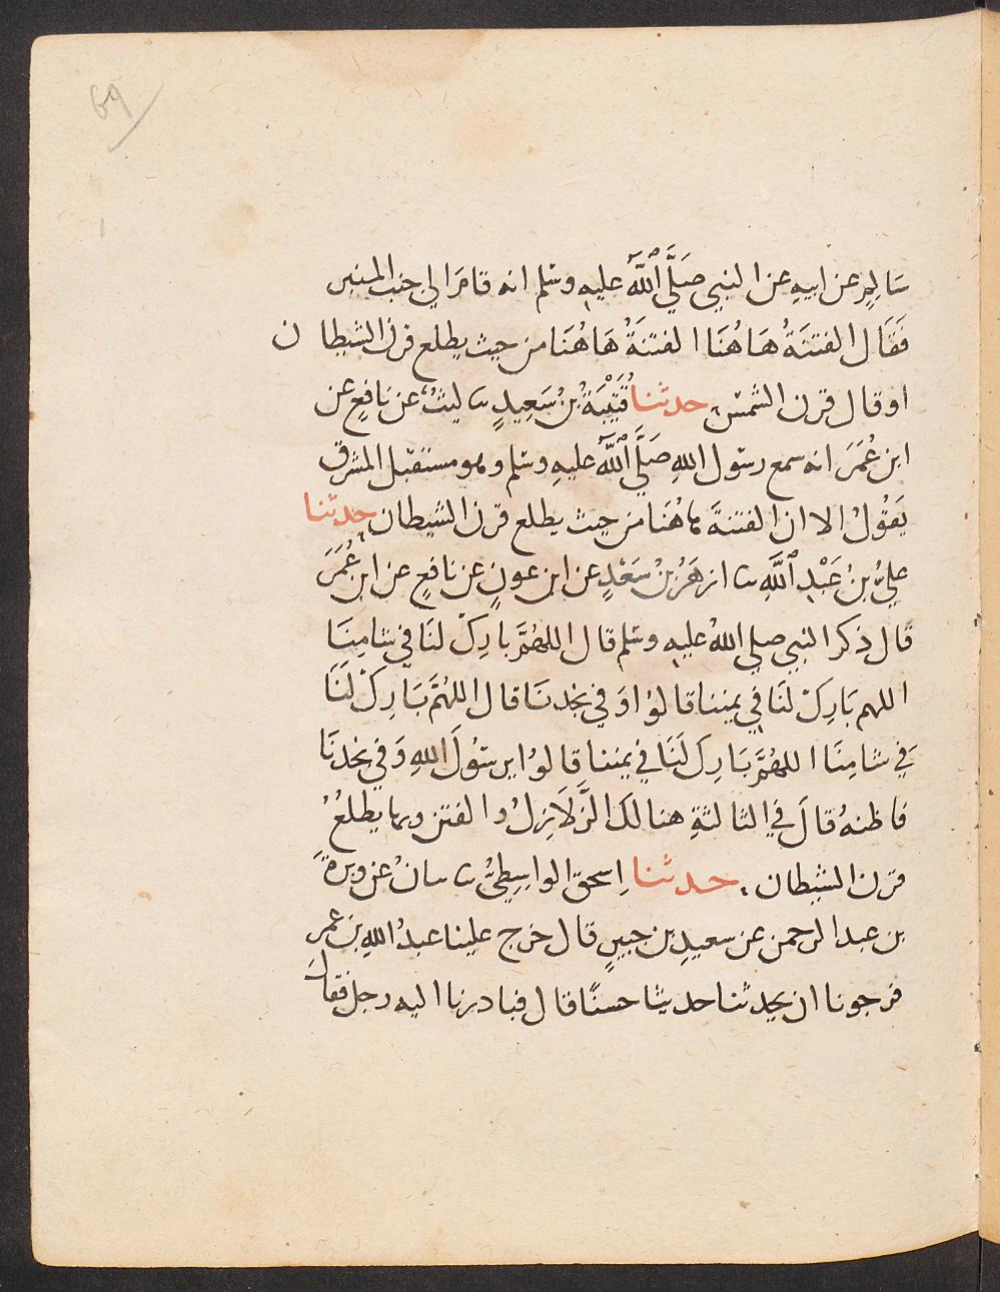 69
سَالِمٍ عن ابيهِ عن النبي صَلَّي اللّٰهُ عليهِ وسَلم انه قامَ الي جنب المنبر
فَقَال الفتنَةُ هَاهُنَا الفتنَةُ هَاهُنَا من حيث يطلع قرن الشيطان
او قال قرن الشمس حدثنا قُتَيْبَةُ بنُ سَعِيدٍ ثنا ليثٌ عن نافعٍ عن
ابن عُمَرَ انه سمع رسول اللهِ صَلَّي اللّٰهُ عليهِ وسَلم وهو مستقبل المشرق
يَقُولُ الا ان الفتنةَ هاهُنَا من حيث يطلع قرن الشيطان حدثنا
عليُّ بنُ عَبْدِ اللّٰهِ ثنا ازهَرُ بنُ سَعْدٍ عن ابن عونٍ عن نافعٍ عن ابن عُمَرَ
قال ذكر النبي صلي اللهُ عليهِ وسَلم قال اللهُمَّ بارِكْ لنَا في شامِنَا
اللهم بَارِكْ لنَا في يمننا قالوُا وَفي نجدنَا قال اللهُمَّ بَارِكْ لنَا
في شامِنَا اللهُمَّ بَارِك لَنَا في يمننا قالوُا يرسُولَ اللهِ وَفي نجدنَا
فاظنهُ قالَ في الثالثةِ هنالك الزَّلَازِلُ والفتن وبها يطلُعُ
قرن الشيطان حدثنا اِسحق الواسِطيُّ ثنا عن وبرةَ
بن عبد الرحمن عن سعيدِ بن جبيرٍ قال خرج علينا عبدُ اللهِ بن عمر
فرجونا ان يحدثنا حديثا حسنًا قال فبادرنا اليه رجل فقالَ